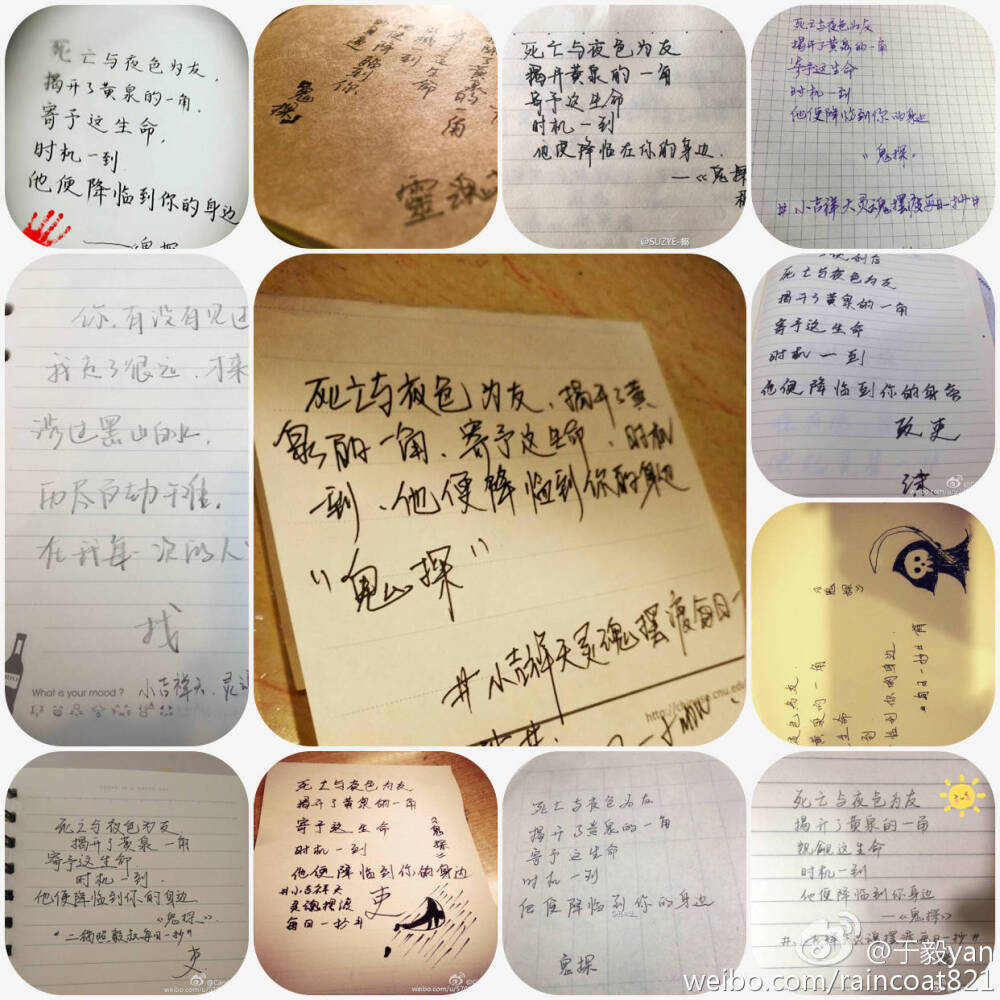 死亡与夜色为友,
揭开了黄泉的一角.
寄予这生命,
时机一到
他便降临到你的身边
鬼探
靈魂
死亡与夜色为友
揭开黄泉的一角
寄予这生命
时机一到
他便降临在你的身边.
—《鬼探
@SUZYE-
死亡与夜色为友
揭开了黄泉的一角
寄予这生命
时机一到
他便降临到你的身边
"鬼探"
#小吉祥天灵魂摆渡每日一抄#
你,有没有见过
我走了很远,才来
涉过黑山白水,
历尽百劫千难,
在我每一次的人
找
What is your mood ?
小吉祥天.灵
死亡与夜色为友、揭开了黄
泉的一角、寄予这生命、时机
一到、他便降临到你的身边
"鬼探"
#小吉祥天灵魂摆渡每日一
死亡与夜色为友
揭开了黄泉的一角
寄予这生命
时机一到
他便降临到你的身旁
《鬼探》
夜色为友.
黄泉的一角
生命
到.
临到你的身边.
#每日一抄#
死亡与夜色为友
揭开了黄泉一角
寄予这生命
时机一到
他便降临到你的身边
《鬼探》
死亡与夜色为友
揭开了黄泉的一角
寄予这生命
时机一到
他便降临到你的身边
《鬼探》
#小吉祥天
灵魂摆渡
每日一抄#
死亡与夜色为友
揭开了黄泉的一角
寄予这生命
时机一到
他便降临到你的身边
鬼探
死亡与夜色为友
揭开了黄泉的一角
这生命
时机一到
他便降临到你身边
——《鬼探》
@于毅yan
weibo.com/raincoat821